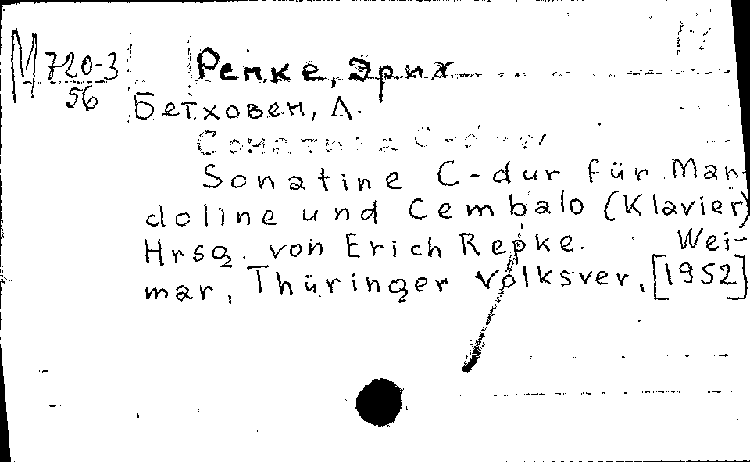 М 720-3 Репке, Эрих
56
Бетховен, Л.
Соната C-dur
Sonatine C-dur für Man-
doline und Cembalo (Klavier)
Hrsg. von Erich Repke. Wei-
mar, Thüringer Volksver, [1952]